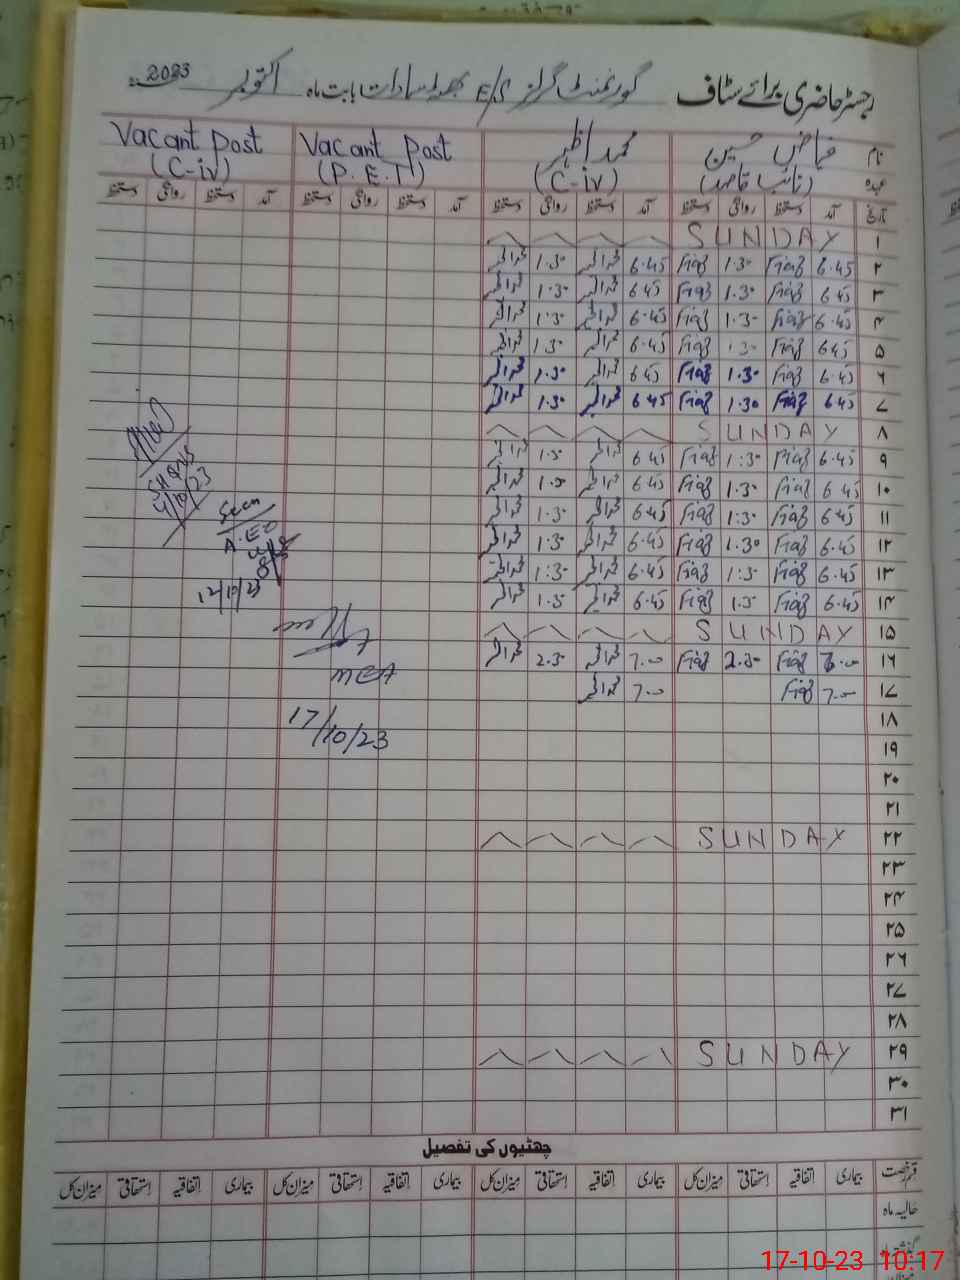 رجسٹر حاضری برائے سٹاف گورنمنٹ گرلز E/S سادات بابت ماہ اکتوبر 2023
نام فیاض حسین محمد اظہر Vacant Post Vacant Post
عہدہ (نائب قاصد) (C-iv) (P.E.T) (C-iv)
تاریخ آمد دستخط روانگی دستخط آمد دستخط روانگی دستخط آمد دستخط روانگی دستخط آمد دستخط روانگی دستخط
۱ SUNDAY
۲ 6.45 Fiaz 1.30 Fiaz 6.45 1.30
۳ 6.45 Fiaz 1.30 Fiaz 6.45 1.30
۴ 6.45 Fiaz 1.30 Fiaz 6.45 1.30
۵ 6.45 Fiaz 1.30 Fiaz 6.45 1.30
۶ 6.45 Fiaz 1.30 Fiaz 6.45 1.30
۷ 6.45 Fiaz 1.30 Fiaz 6.45 1.30
۸ SUNDAY
۹ 6.45 Fiaz 1:30 Fiaz 6.45 1.30
۱۰ 6.45 Fiaz 1.30 Fiaz 6.45 1.30
۱۱ 6.45 Fiaz 1:30 Fiaz 6.45 1.30
۱۲ 6.45 Fiaz 1.30 Fiaz 6.45 1.30
۱۳ 6.45 Fiaz 1:30 Fiaz 6.45 1:30
۱۴ 6.45 Fiaz 1.30 Fiaz 6.45 1.30
۱۵ SUNDAY
۱۶ 7.00 Fiaz 2.30 Fiaz 7.00 2.30
۱۷ 7.00 Fiaz 7.00
۱۸
۱۹
۲۰
۲۱
۲۲ SUNDAY
۲۳
۲۴
۲۵
۲۶
۲۷
۲۸
۲۹ SUNDAY
۳۰
۳۱
4/10/23
Seen
A.EO
12/10/23
MEA
17/10/23
چھٹیوں کی تفصیل
قسم رخصت بیماری اتفاقیہ استحقاقی میزان کل بیماری اتفاقیہ استحقاقی میزان کل بیماری اتفاقیہ استحقاقی میزان کل بیماری اتفاقیہ استحقاقی میزان کل
حالیہ ماہ
17-10-23 10:17